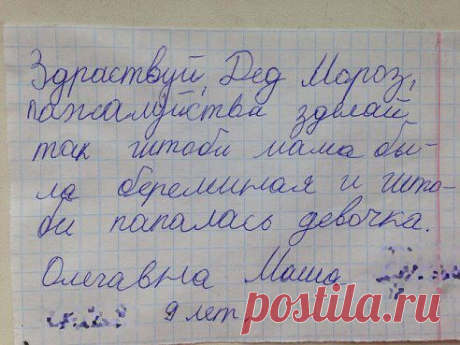 Здраствуй, Дед Мороз,
пажалуйства зделай
так штоби мама бы-
ла береминая и што-
би папалась девочка.
Олегавна Маша
9 лет
postila.ru